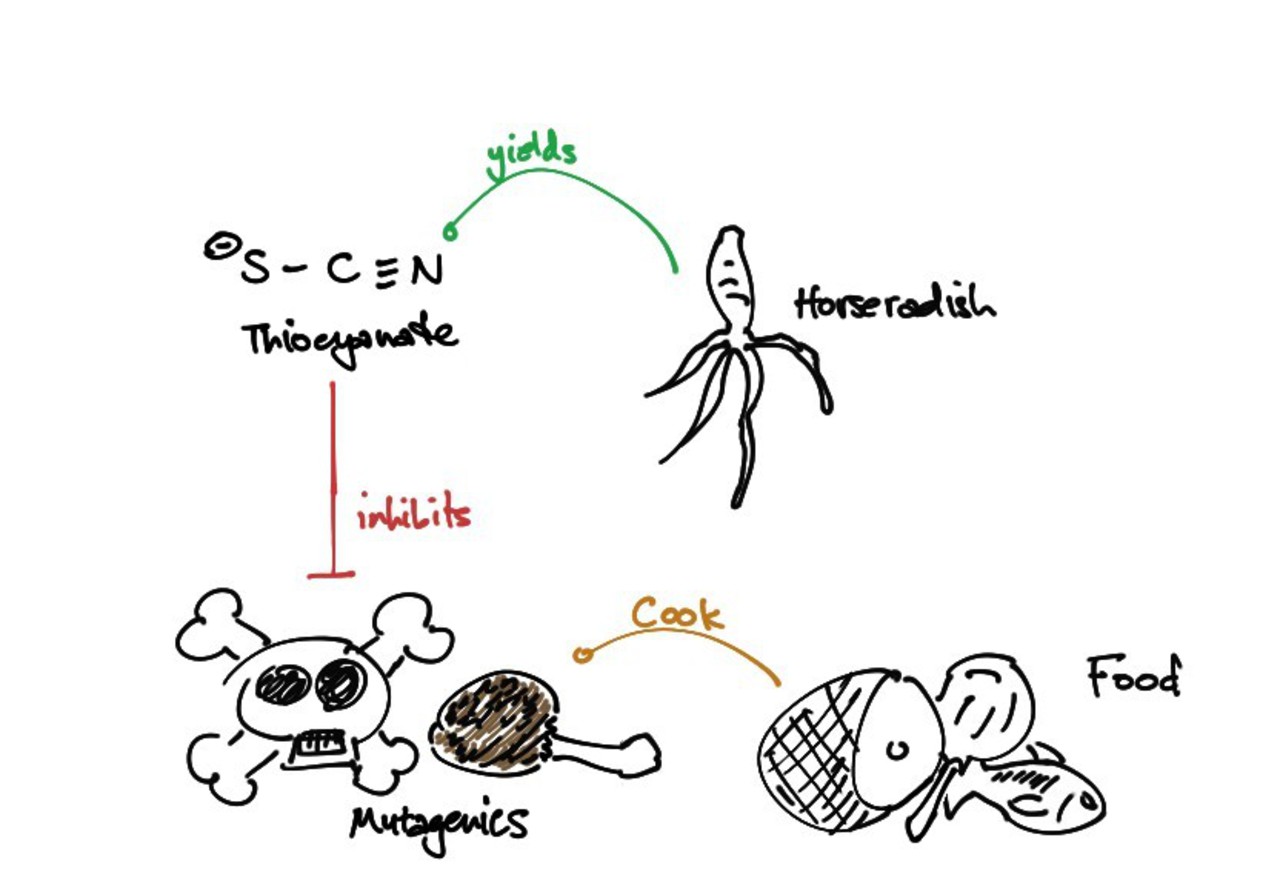 yields
⊖S - C ≡ N
Thiocyanate
Horseradish
inhibits
Cook
Food
Mutagenics